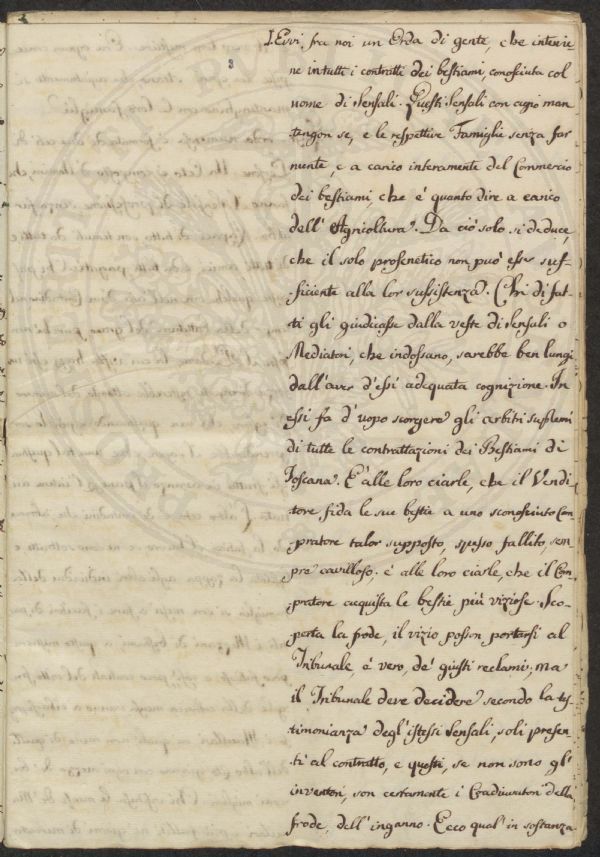 I. Evvi fra noi un Orda di gente, che intervie
ne in tutti i contratti dei bestiami, conosciuta col
nome di Sensali. Questi Sensali con agio man
tengon se, e le respettive Famiglie senza far
niente, e a carico interamente del Commercio
dei bestiami, che è quanto dire a carico
dell'Agricoltura. Da ciò solo si deduce,
che il solo prosenetico non può esser suf-
ficiente alla lor sussistenza. Chi di fat-
ti gli giudicasse dalla veste di Sensali o
Mediatori, che indossano, sarebbe ben lungi
dall'aver d'essi adequata cognizione. In
essi fa d'uopo scorgere gli arbitri supremi
di tutte le contrattazioni dei Bestiami di
Toscana. È alle loro ciarle, che il Vendi
tore fida le sue bestie a uno sconosciuto Com-
pratore talor supposto, spesso fallito, sem
pre cavilloso; è alle loro ciarle, che il Com
pratore acquista le bestie più viziose. Sco-
perta la frode, il vizio posson portarsi al
Tribunale, è vero, de' giusti reclami, ma
il Tribunale deve decidere secondo la tes
timonianza degl'istessi Sensali, soli presen
ti al contratto, e questi, se non sono gl'
inventori, son certamente i della
frode, dell'inganno. Ecco qual'in sostanza